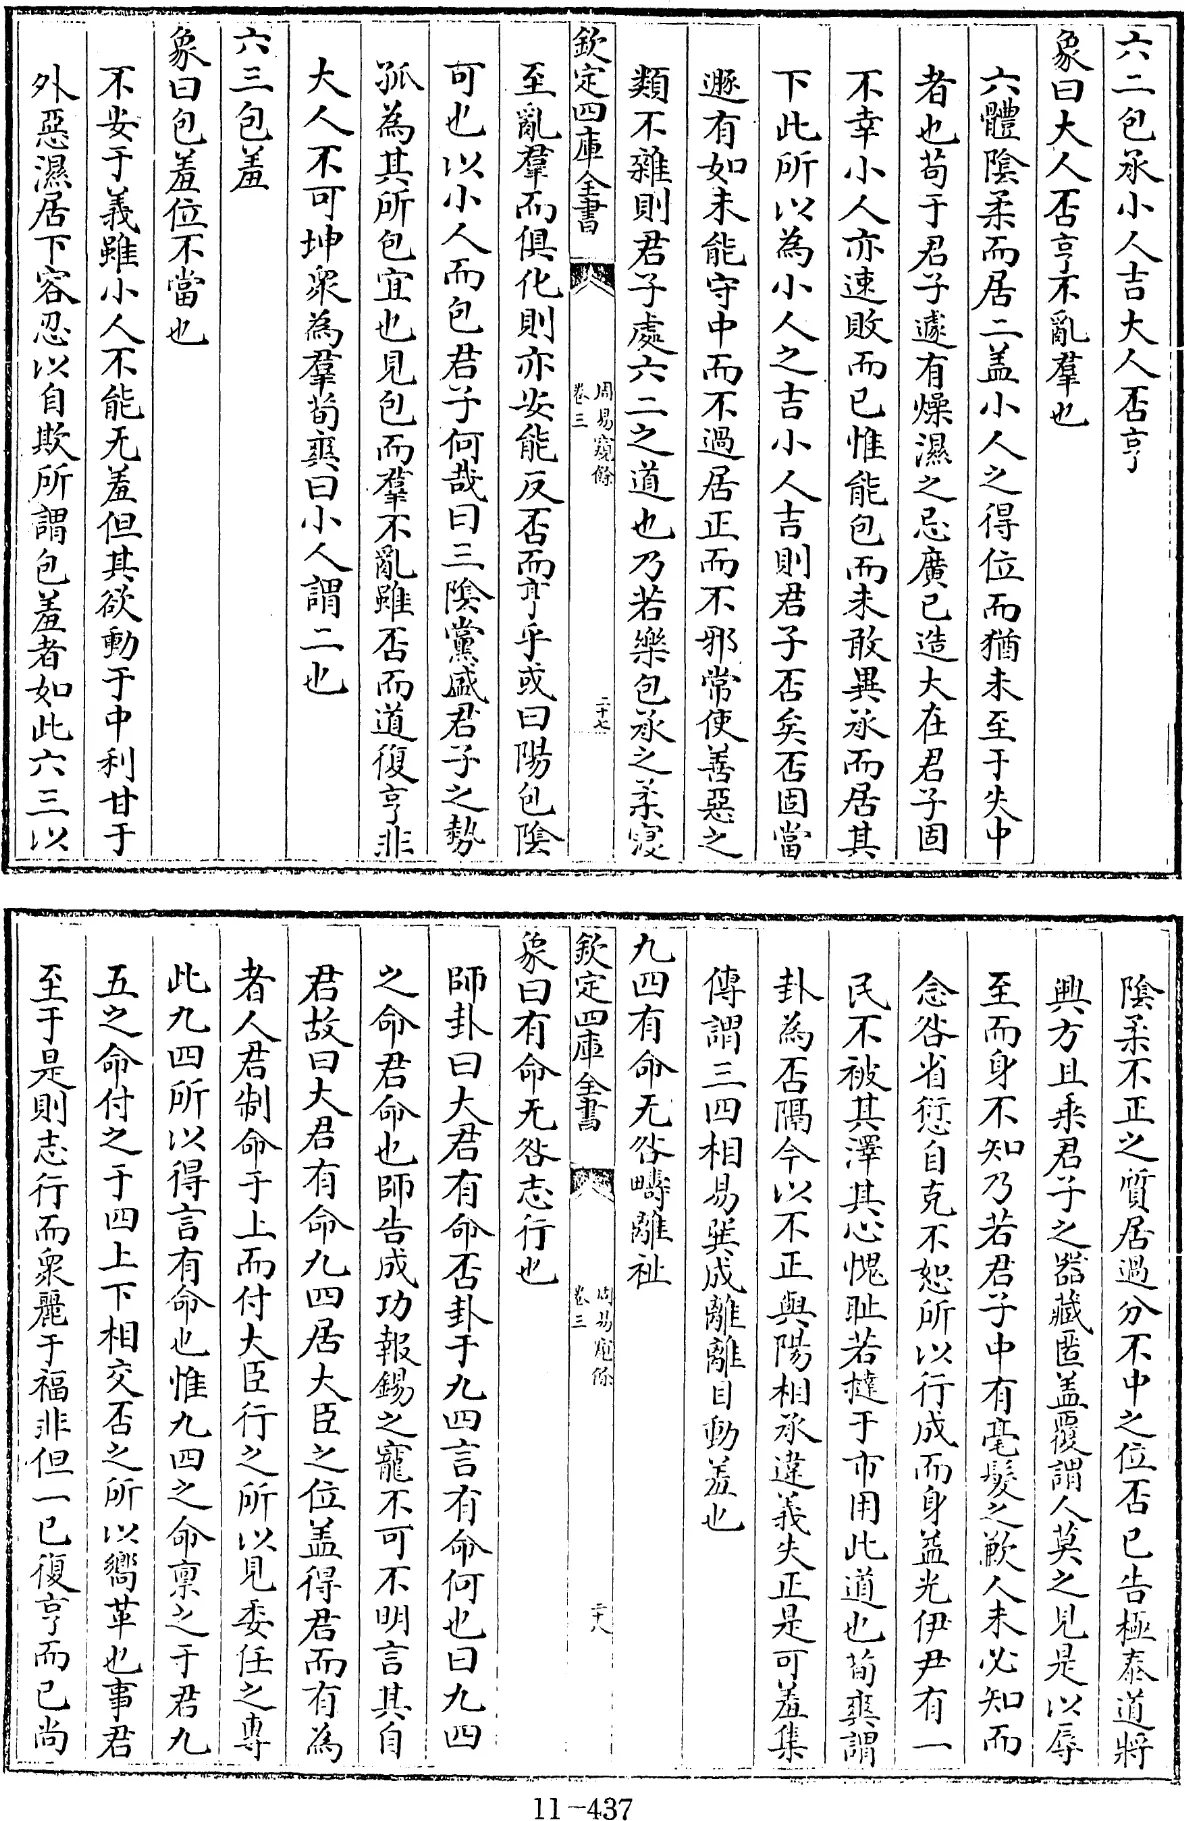 六二包承小人吉大人否亨
象曰大人否亨不亂羣也
六體陰柔而居二盖小人之得位而猶未至于失中
者也苟于君子遽有燥濕之忌廣已造大在君子固
不幸小人亦速敗而已惟能包而未敢異承而居其
下此所以為小人之吉小人吉則君子否矣否固當
遯有如未能守中而不過居正而不邪常使善惡之
類不雜則君子處六二之道也乃若樂包承之柔寖
欽定四庫全書
周易窺餘
卷三
二十七
至亂羣而俱化則亦安能反否而亨乎或曰陽包陰
可也以小人而包君子何哉曰三陰黨盛君子之勢
孤為其所包宜也見包而羣不亂雖否而道復亨非
大人不可坤衆為羣荀爽曰小人謂二也
六三包羞
象曰包羞位不當也
不安于義雖小人不能无羞但其欲動于中利甘于
外惡濕居下容忍以自欺所謂包羞者如此六三以
陰柔不正之質居過分不中之位否已告極泰道將
興方且乘君子之器藏匿盖覆謂人莫之見是以辱
至而身不知乃若君子中有毫髮之歉人未必知而
念咎省愆自克不恕所以行成而身益光伊尹有一
民不被其澤其心愧耻若撻于市用此道也荀爽謂
卦為否隔今以不正與陽相承違義失正是可羞集
傳謂三四相易巽成離離目動羞也
九四有命无咎疇離祉
欽定四庫全書
周易窺餘
卷三
二十八
象曰有命无咎志行也
師卦曰大君有命否卦于九四言有命何也曰九四
之命君命也師告成功報錫之寵不可不明言其自
君故曰大君有命九四居大臣之位盖得君而有為
者人君制命于上而付大臣行之所以見委任之專
此九四所以得言有命也惟九四之命禀之于君九
五之命付之于四上下相交否之所以嚮革也事君
至于是則志行而衆麗于福非但一已復亨而已尚
11-437